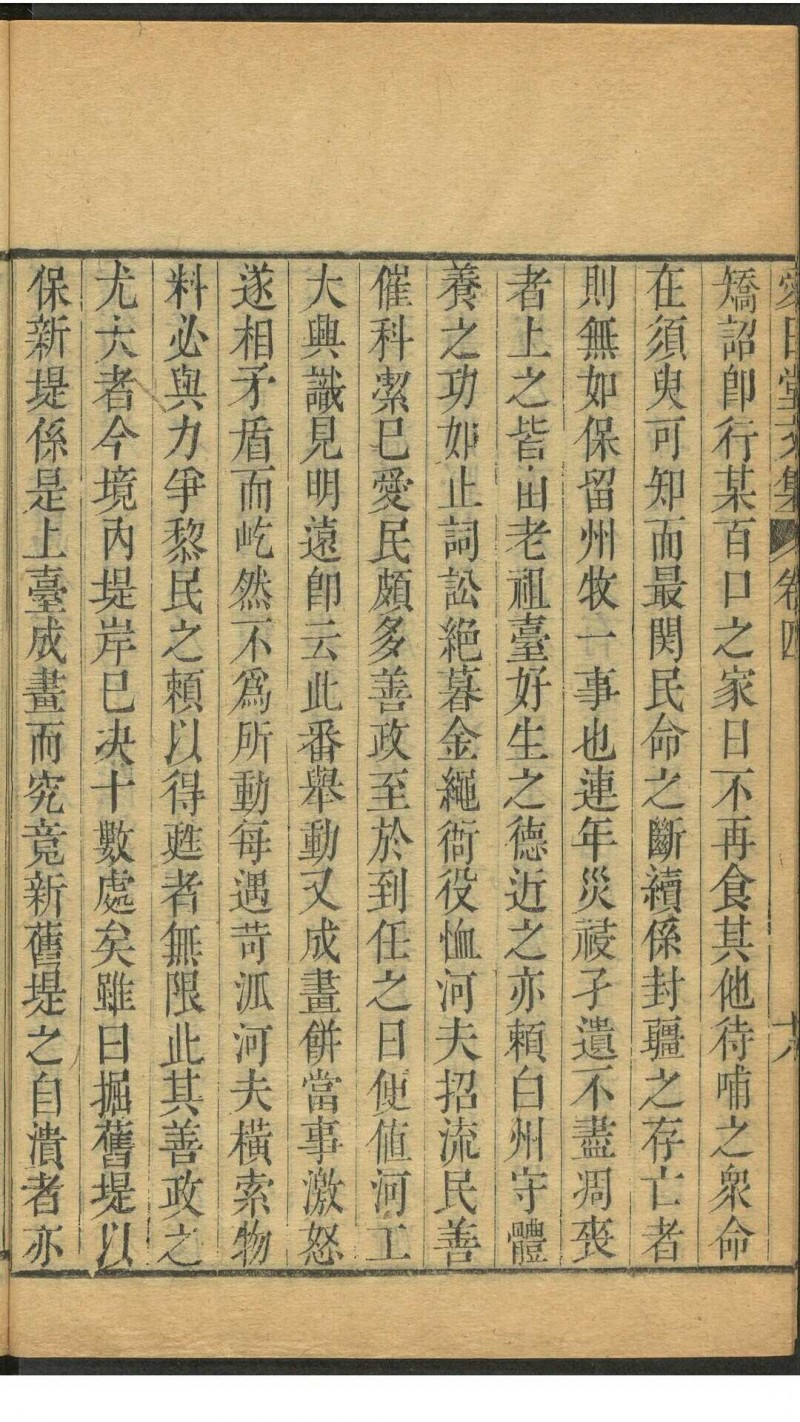 愛日堂文集 卷四 十八
矯詔卽行某百口之家日不再食其他待哺之衆命
在須臾可知而最関民命之斷續係封疆之存亡者
則無如保留州牧一事也連年災祲孑遺不盡凋喪
者上之皆由老祖臺好生之德近之亦賴白州守體
養之功如止詞訟絕暮金繩衙役恤河夫招流民善
催科潔巳愛民頗多善政至於到任之日便値河工
大興識見明遠卽云此番舉動又成畫餅當事激怒
遂相矛盾而屹然不爲所動每遇苛派河夫橫索物
料必與力爭黎民之賴以得甦者無限此其善政之
尤大者今境內堤岸巳决十數處矣雖曰掘舊堤以
保新堤係是上臺成畫而究竟新舊堤之自潰者亦